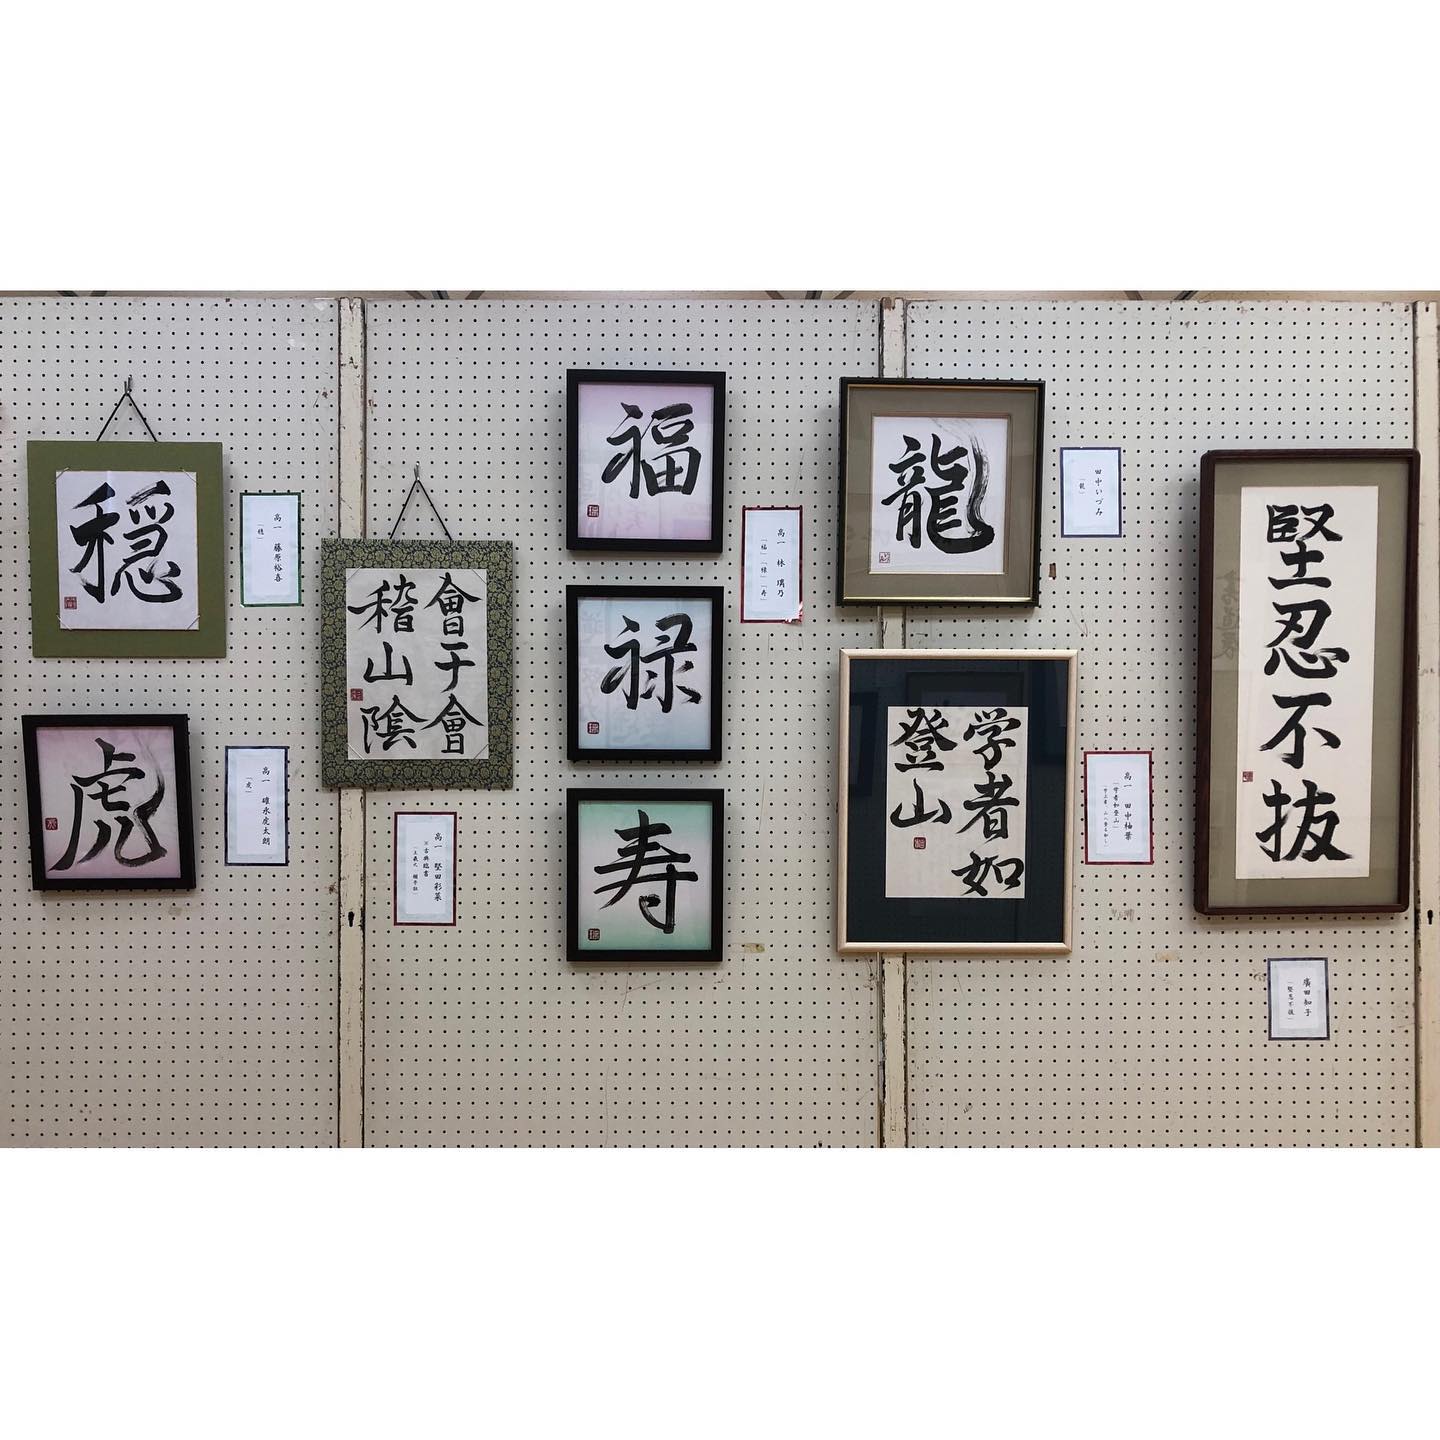 穏
高一 藤原裕喜
「穏」
虎
高一 碓氷虎太朗
「虎」
會于會
稽山陰
高一 堅田彩菜
※古典臨書
福
禄
寿
高一 林 璃乃
「福」「禄」「寿」
龍
田中いづみ
「龍」
学者如
登山
高一 田中柚葉
「学者如登山」
堅忍不抜
廣田知子
「堅忍不抜」